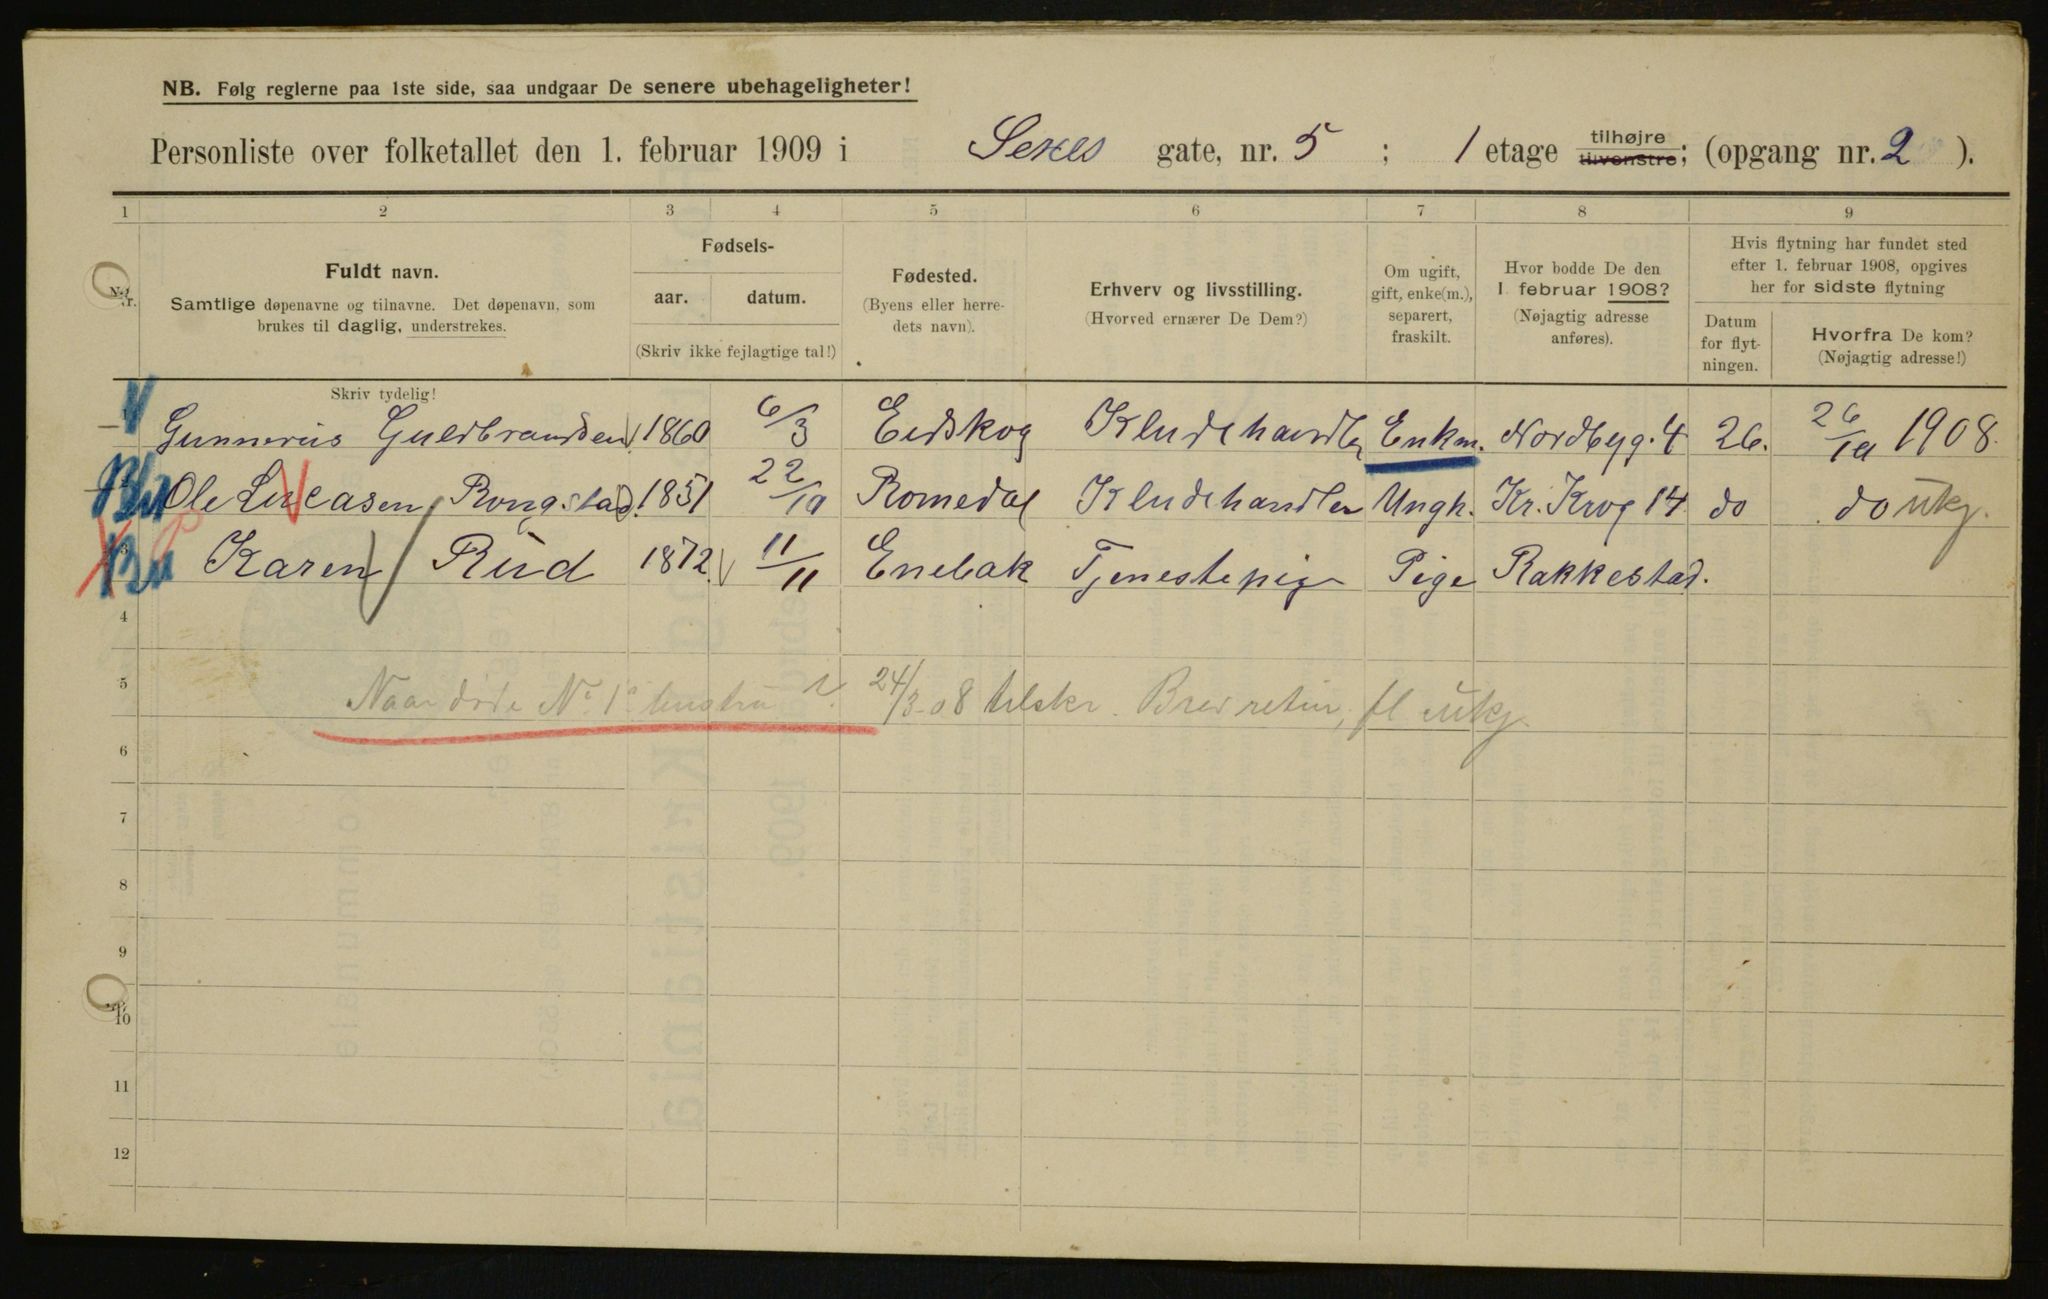 NB. Følg reglerne paa 1ste side, saa undgaar De senere ubehageligheter!
Personliste over folketallet den 1. februar 1909 i Sexes gate, nr. 5 ; 1 etage tilhøjre tilvenstre; (opgang nr. 2 ).
1 2 3 4 5 6 7 8 9
Nr.
Fuldt navn.
Samtlige døpenavne og tilnavne. Det døpenavn, som
brukes til daglig, understrekes.
Fødsels-
aar. datum.
(Skriv ikke fejlagtige tal!)
Fødested.
(Byens eller herre-
dets navn).
Erhverv og livsstilling.
(Hvorved ernærer De Dem?)
Om ugift,
gift, enke(m.),
separert,
fraskilt.
Hvor bodde De den
1. februar 1908?
(Nøjagtig adresse
anføres).
Hvis flytning har fundet sted
efter 1. februar 1908, opgives
her for sidste flytning
Datum
for flyt-
ningen.
Hvorfra De kom?
(Nøjagtig adresse!)
Skriv tydelig!
1 Gunnerius Guldbrandsen 1860 6/3 Eidskog Kludehandler Enkm. Nordbyg. 4 26. 26/10 1908.
Ole Lucasen Rongstad. 1851 22/10 Romedal Kludehandler Ungk. Kr. Krog 14 do do ukj.
3 Karen Rud 1872. 11/11 Enebak Tjenestepige Pige Rakkestad.
4
5 Naar døde No 1s hustru ? 24/3-08 tilskr. Brev retur, fl ukj.
6
7
8
9
10
11
12